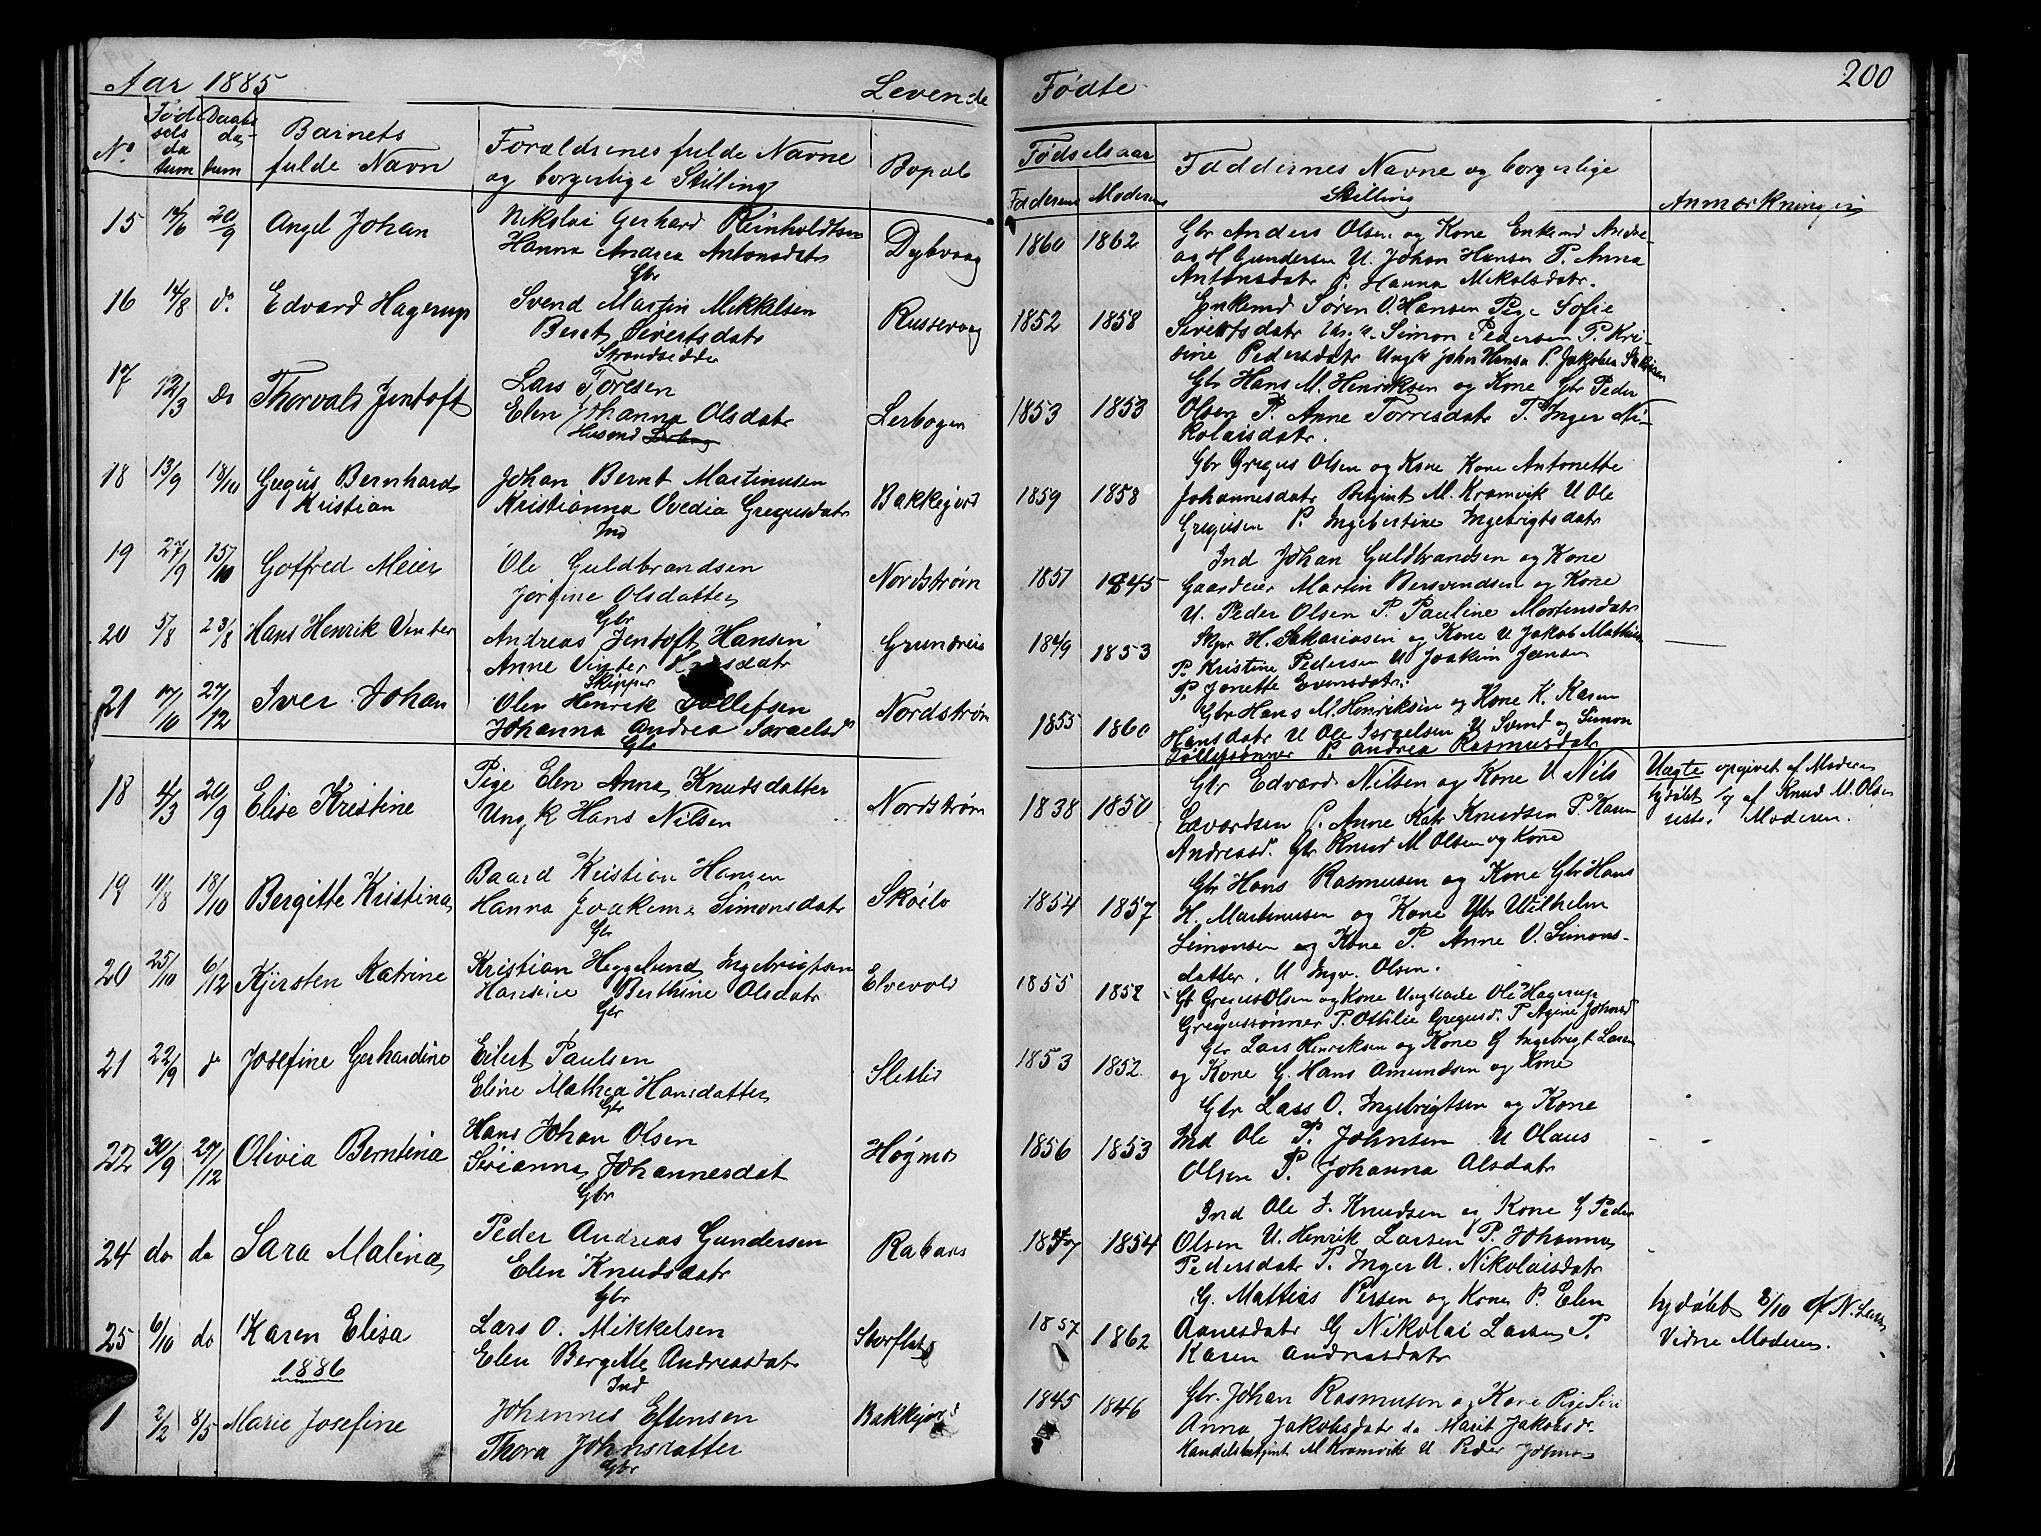 Aar 1885 Levende Fødte 200
No. Fødselsdatum Daabsdatum Barnets fulde Navn Forældrenes fulde Navne og borgerlige Stilling Bopæl Fødselsaar Faderens Moderens Faddernes Navne og borgerlige Stilling Anmærkninger
15 20/9 Angel Johan Nikolai Gerhard Reinholdtsen Dybvaag 1860 1862 Gbr Anders Olsen og Kone Enkemd Andre-
Hanna Andrea Antonsdatr as H Gundersen U. Johan Hansen P. Anna
Gbr Antonsdatr P. Hanna Mikalsdatr.
16 14/8 do Edvard Hagerup Svend Martin Mikkelsen Russevaag 1852 1858 Enkemd Søren O. Hansen Pige Sofie
Berit Sivertsdatr Sivertsdatr Ung. k. Simon Pedersen P. Kri-
Strandsidder sine Pedersdatr Ungk John Hansa P. Jakobea
17 12/3 Do Thorvald Jentoft Lars Toresen Lerbogen 1853 1853 Gbr Hans M. Henriksen og Kone Gbr Peder
Elen Johanna Olsdatr Olsen P. Anne Torresdatr P. Inger Ni-
Husmd kolaisdatr.
18 13/9 18/10 Gregus Bernhard Johan Bernt Martinusen Bakkejord 1859 1858 Gbr Gregus Olsen og Kone Kone Antonette
Kristian Kristianna Ovedia Gregusdatr Johannesdatr Betjent M. Kramvik U Ole
Ind Gregusen P. Ingebertine Ingebrigtsdatr
19 27/9 15/10 Gotfred Meier Ole Guldbrandsen Nordstrøm 1857 1845 Ind Johan Guldbrandsen og Kone
Jørgine Olsdatter Gaardeier Martin Bersvendsen og Kone
Gbr U. Peder Olsen P. Pauline Mortensdatr
20 5/8 23/8 Hans Henrik Vinter Andreas Jentoft Hansen Grundreis 1849 1853 Skpr H. Sakariasen og Kone U Jakob Mathi
Anne Vinter P. Kristine Pedersen U Joakim Jensen
Skipper P. Jonette Evensdatr.
21 17/10 27/12 Iver Johan Olen Henrik Tollefsen Nordstrøm 1855 1860 Gbr Hans M. Henriksen og Kone K. Karen
Johanna Andrea Israelsd Hansdatr U Ole Israelsen U Svend og Simon
Gbr Tollefsønner P. Andrea Rasmusdatr
18 4/3 20/9 Elise Kristine Pige Elen Anna Knudsdatter Nordstrøm 1838 1850 Gbr Edvard Nilsen og Kone U Nils Uægte opgivet af Moderen
Ung. k Hans Nilsen Edvardsen P. Anne Kat Knudsen P. Karen hjdøbt af Knud M. Olsen
Andreasd. Gbr Knud M Olsen og Kone Moderen.
19 11/8 18/10 Bergitte Kristina Baard Kristian Hansen Skøslv 1854 1857 Gbr Hans Rasmusen og Kone Gbr Hans
Hanna Joakima Simonsdatr H. Martinusen og Kone Gbr Vilhelm
Gbr Simonsen og Kone P. Anne O. Simons-
datter. U Ingv. Olsen.
20 25/10 6/12 Kjersten Katrine Kristian Heggelund Ingebrigtsen Elvevold 1855 1852 Gb Gregus Olsen og Kone Ungkarle Ole Hagerup
Hansine Berthine Olsdatr Gregussønner P. Ottilie Gregusd. P Agine Johansd
Gbr
21 22/9 do Josefine Gerhardine Eilert Paulsen Slettli 1853 1852 Gbr Lars Henriksen og Kone G Ingebrigt Larsen
Eline Mathea Hansdatter og Kone G. Hans Amundsen og Kone
Gbr
22 30/9 27/12 Olivia Berntina Hans Johan Olsen Høgmo 1856 1853 Gbr Lass O. Ingebrigtsen og Kone
Serianna Johannesdat Ind Ole P. Johnsen U Olaus
Gbr Olsen P. Johanna Olsdatr
24 do do Sara Malina Peder Andreas Gundersen Rabaas 1854 Ind Ole J. Knudsen og Kone G Peder
Elen Knudsdatr Olsen U. Henrik Larsen P. Johanna
Gbr Pedersdatr P. Inger U. Nikolaisdatr
25 6/10 do Karen Elisa Lars O. Mikkelsen 1857 1862 G. Mattias Persen og Kone P. Elen hjdøbt 8/10 af N. Larsen
Elen Bergitte Andreasdatr Aanesdatr G Nikolai Larsen P. Vidne Moderen.
Ind Karen Andreasdatr
1886
1 2/2 8/5 Marie Josefine Johannes Eftensen Bakkejord 1845 1846 Gbr. Johan Rasmusen og Kone Pige Siri
Thora Johnsdatter Anna Jakobsdatr do Marit Jakobsdr.
Gbr Handelsbetjent M Kramvik U Peder Johnsen